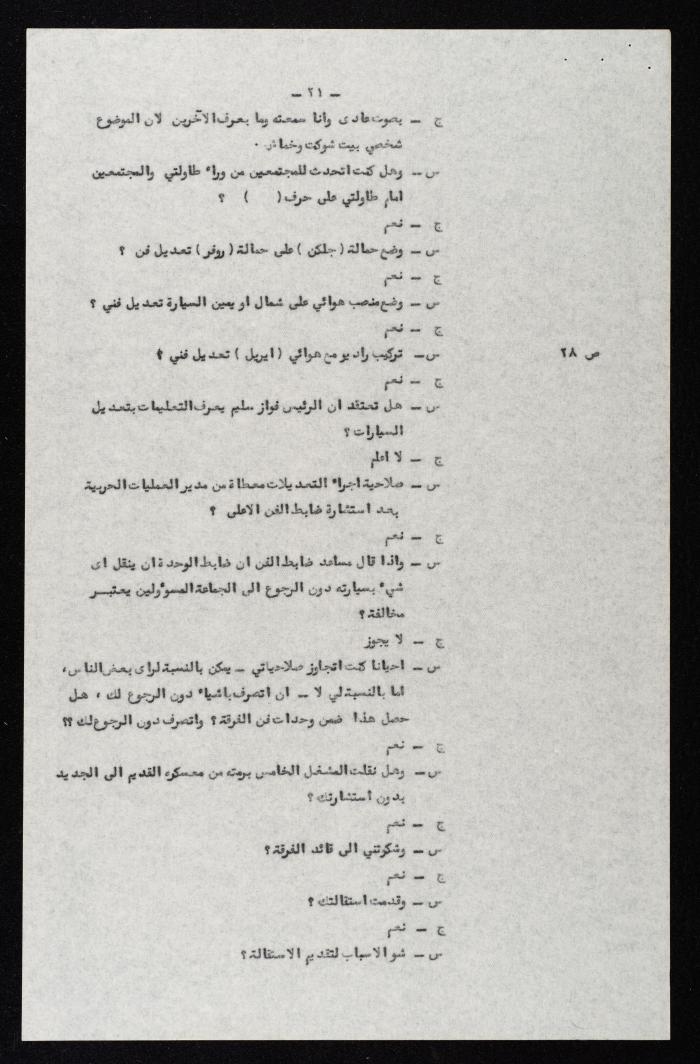 ـ ٢١ ـ
ج ـ بصوت عادى وانا سمعته وما بعرف الآخرين لان الموضوع
شخصي بيت شوكت وخماش .
س ـ وهل كنت اتحدث للمجتمعين من وراء طاولتي والمجتمعين
امام طاولتي على حرف (    ) ؟
ج ـ نعم
س ـ وضع حمالة ( جلكن ) على حمالة ( روفر ) تعديل فن ؟
ج ـ نعم
س ـ وضع منصب هوائي على شمال او يمين السيارة تعديل فني ؟
ج ـ نعم
ص ٢٨ س ـ تركيب راديو مع هوائي ( ايريل ) تعديل فني ؟
ج ـ نعم
س ـ هل تعتقد ان الرئيس فواز سليم يعرف التعليمات بتعديل
السيارات ؟
ج ـ لا اعلم
س ـ صلاحية اجراء التعديلات معطاة من مدير العمليات الحربية
بعد استشارة ضابط الفن الاعلى ؟
ج ـ نعم
س ـ واذا قال مساعد ضابط الفن ان ضابط الوحدة ان ينقل اى
شيء بسيارته دون الرجوع الى الجماعة المسوءولين يعتبر
مخالفة ؟
ج ـ لا يجوز
س ـ احيانا كنت اتجاوز صلاحياتي ـ يمكن بالنسبة لراى بعض الناس ،
اما بالنسبة لي لا ـ ان اتصرف باشياء دون الرجوع لك ، هل
حصل هذا ضمن وحدات فن الفرقة ؟ واتصرف دون الرجوع لك ؟؟
ج ـ نعم
س ـ وهل نقلت المشغل الخامس برمته من معسكره القديم الى الجديد
بدون أستشارتك ؟
ج ـ نعم
س ـ وشكوتني الى قائد الفرقة ؟
ج ـ نعم
س ـ وقدمت استقالتك ؟
ج ـ نعم
س ـ شو الاسباب لتقديم الاستقالة ؟